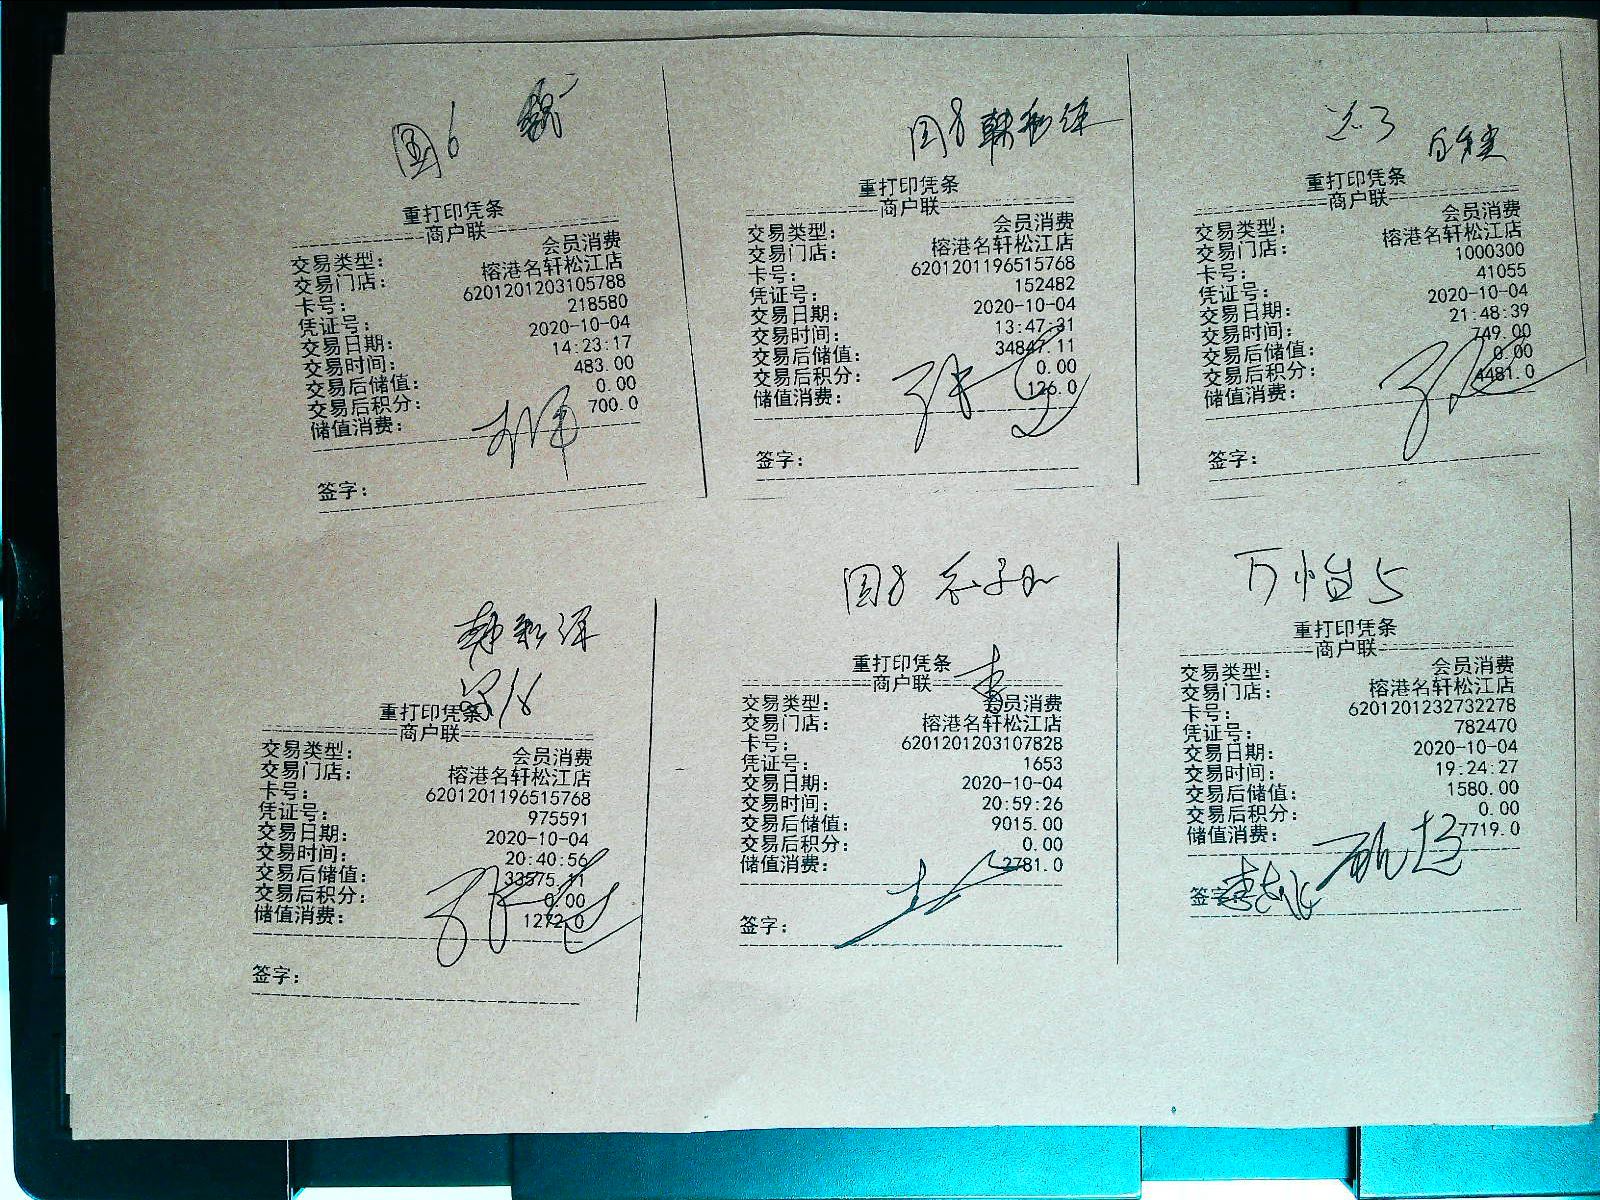 图6
重打印凭条
商户联
交易类型： 会员消费
交易门店： 榕港名轩松江店
卡号： 6201201203105788
凭证号： 218580
交易日期： 2020-10-04
交易时间： 14:23:17
交易后储值： 483.00
交易后积分： 0.00
储值消费： 700.0
签字：
图8 韩彩译
重打印凭条
商户联
交易类型： 会员消费
交易门店： 榕港名轩松江店
卡号： 6201201196515768
凭证号： 152482
交易日期： 2020-10-04
交易时间： 13:47:31
交易后储值： 34847.11
交易后积分： 0.00
储值消费： 126.0
签字：
重打印凭条
商户联
交易类型： 会员消费
交易门店： 榕港名轩松江店
卡号： 1000300
凭证号： 41055
交易日期： 2020-10-04
交易时间： 21:48:39
交易后储值： 749.00
交易后积分： 0.00
储值消费： 4481.0
签字：
韩彩译
重打印凭条
商户联
交易类型： 会员消费
交易门店： 榕港名轩松江店
卡号： 6201201196515768
凭证号： 975591
交易日期： 2020-10-04
交易时间： 20:40:56
交易后储值： 33575.11
交易后积分： 0.00
储值消费： 1272.0
签字：
图8
重打印凭条
商户联
交易类型： 会员消费
交易门店： 榕港名轩松江店
卡号： 6201201203107828
凭证号： 1653
交易日期： 2020-10-04
交易时间： 20:59:26
交易后储值： 9015.00
交易后积分： 0.00
储值消费： 2781.0
签字：
万怡5
重打印凭条
商户联
交易类型： 会员消费
交易门店： 榕港名轩松江店
卡号： 6201201232732278
凭证号： 782470
交易日期： 2020-10-04
交易时间： 19:24:27
交易后储值： 1580.00
交易后积分： 0.00
储值消费： 7719.0
签字：